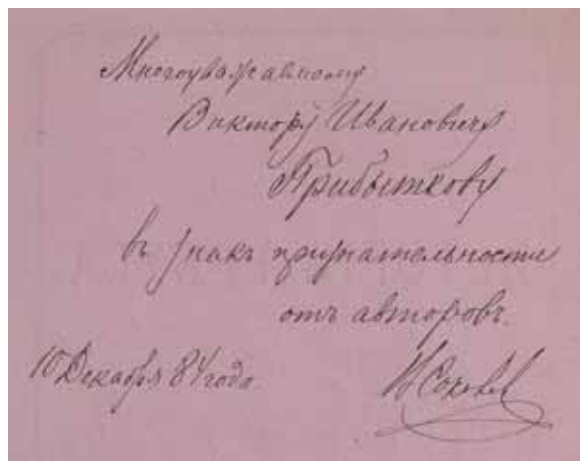 Многоуважаемому
Виктору Ивановичу
Прибыткову
въ знакъ признательности
отъ авторовъ.
10 Декабря 84 года